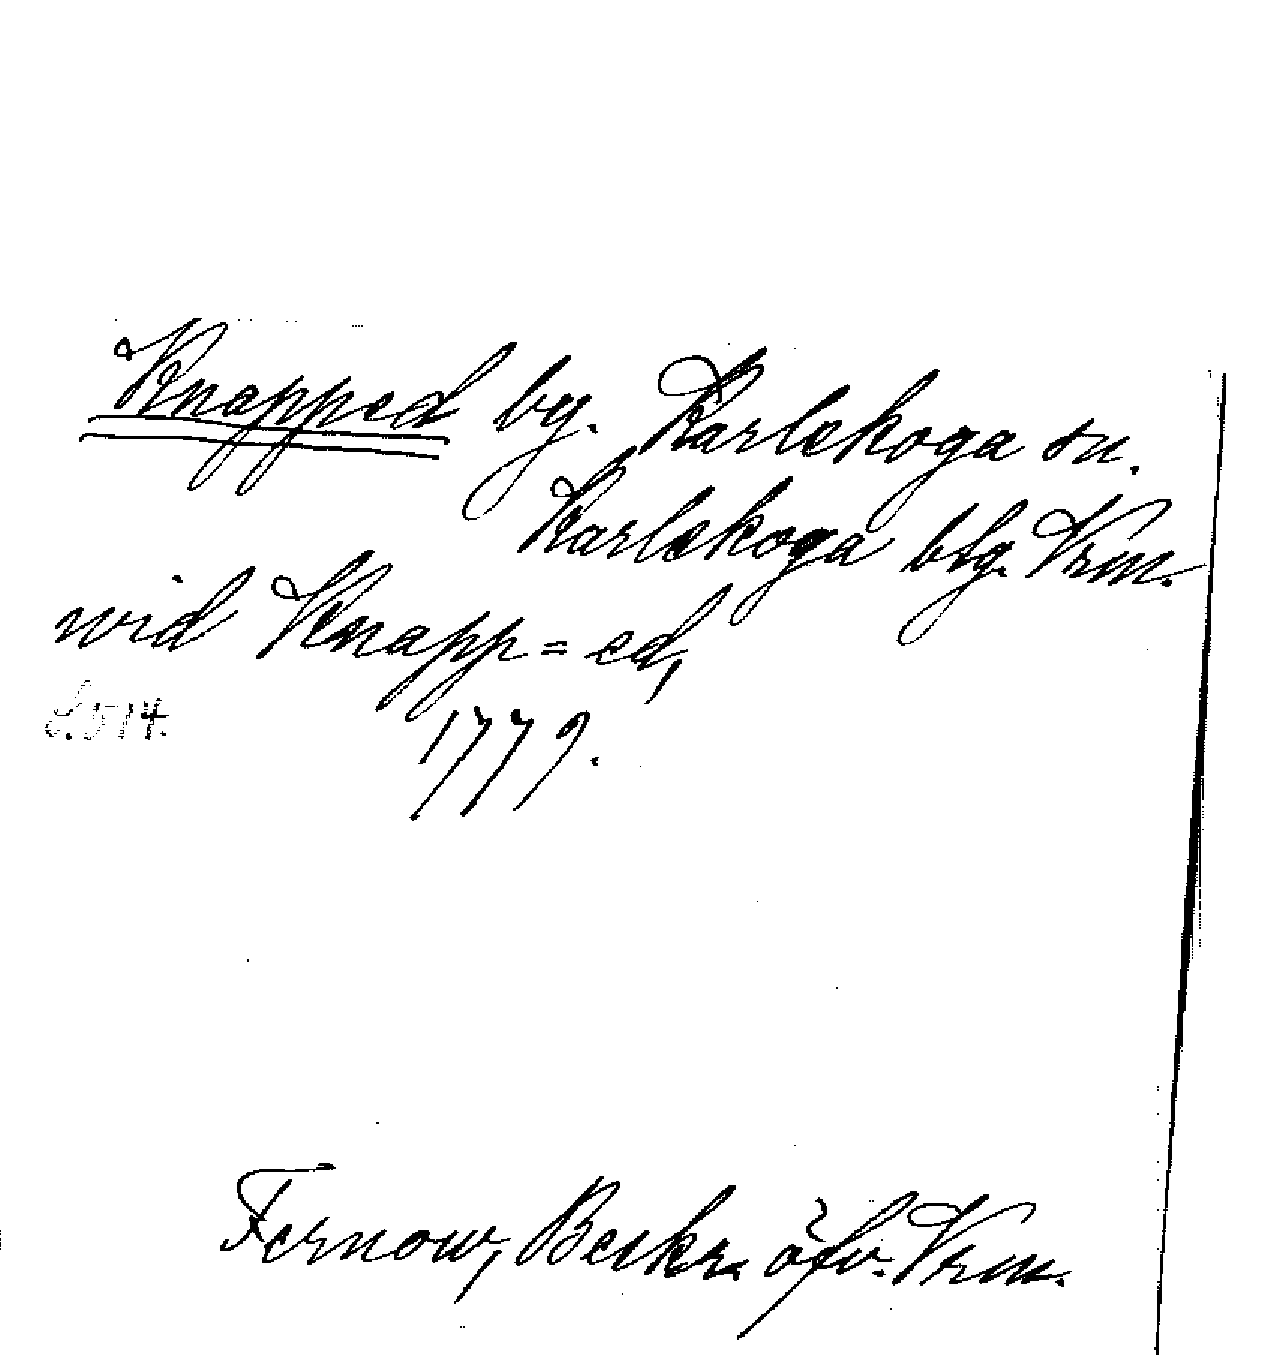 Knapped by. Karlskoga sn.
Karlskoga bsg. Vrm.
wid Knapp=ed,
S. 514. 1779.
Fernow, Beskr. öfv. Vrm.